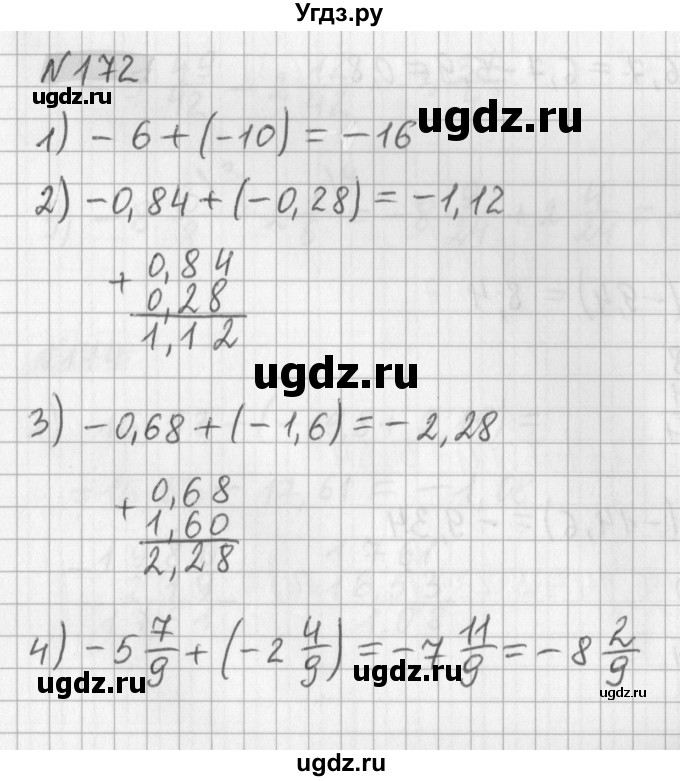 Угдз.ру
N 172
ugdz.ru
ugdz.ru
1) - 6 + (-10) = -16
2) -0,84 + (-0,28) = -1,12
+ 0,84
0,28
1,12
ugdz.ru
ugdz.ru
3) -0,68 + (-1,6) = -2,28
+ 0,68
1,60
2,28
4) -5 7/9 + (-2 4/9) = -7 11/9 = -8 2/9
ugdz.ru
ugdz.ru
ugdz.ru
ugdz.ru